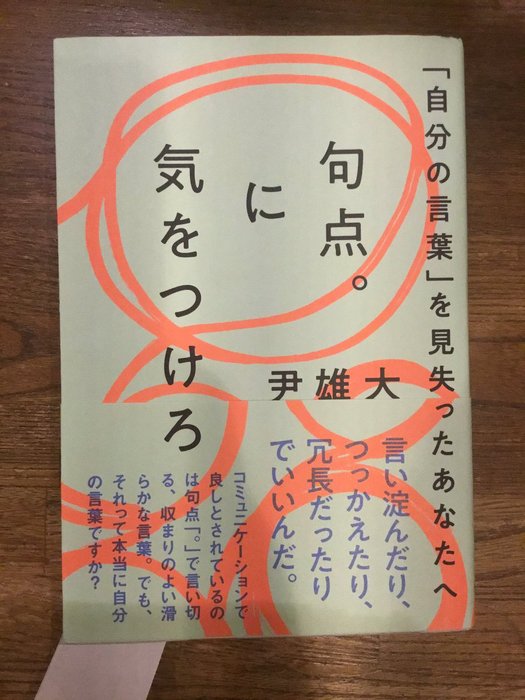 「自分の言葉」を見失ったあなたへ
句点。
に
気をつけろ
尹雄大
言い淀んだり、
つっかえたり、
冗長だったり
でいいんだ。
コミュニケーションで
良しとされているの
は句点「。」で言い切
る、収まりのよい滑
らかな言葉。でも、
それって本当に自分
の言葉ですか?